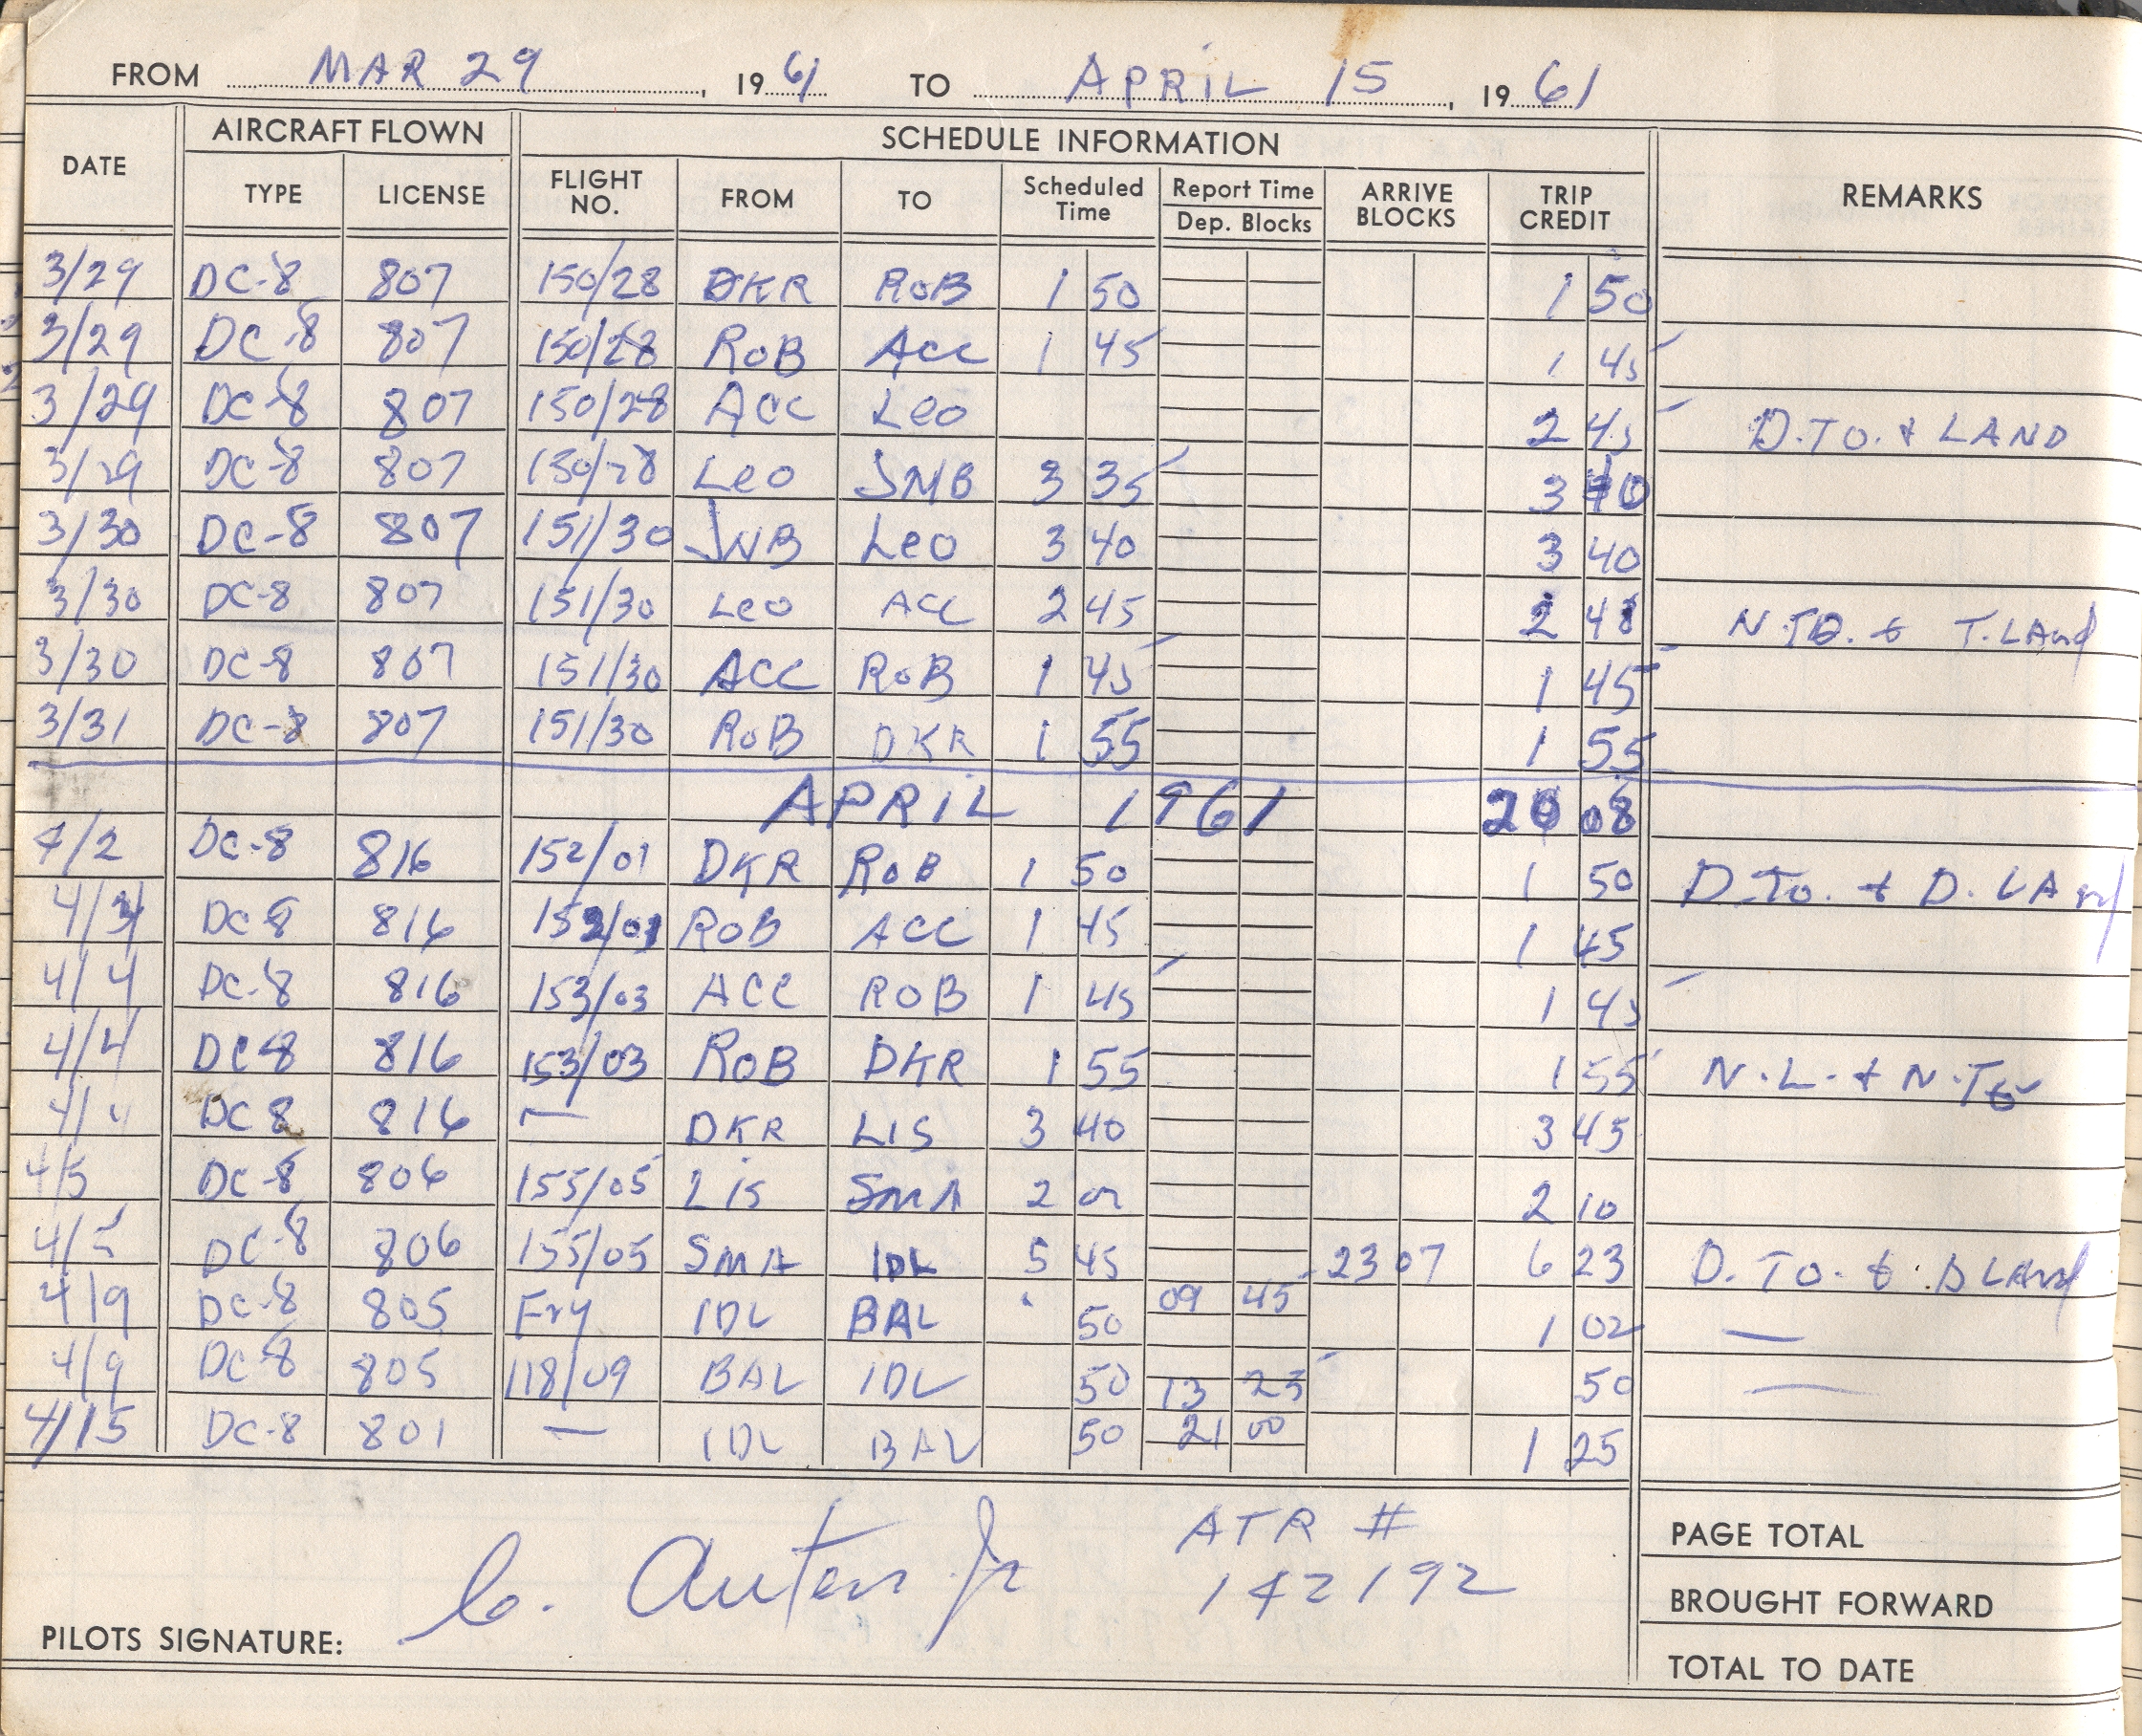 FROM MAR 29, 1961 TO APRIL 15, 1961
DATE AIRCRAFT FLOWN SCHEDULE INFORMATION REMARKS
TYPE LICENSE FLIGHT NO. FROM TO Scheduled Time Report Time Dep. Blocks ARRIVE BLOCKS TRIP CREDIT
3/29 DC-8 807 150/28 DKR ROB 1 50 1 50
3/29 DC-8 807 150/28 ROB ACC 1 45 1 45
3/29 DC-8 807 150/28 ACC Leo 2 45 D.TO. & LAND
3/29 DC-8 807 150/28 Leo JNB 3 35 3
3/30 DC-8 807 151/30 JNB Leo 3 40 3 40
3/30 DC-8 807 151/30 Leo ACC 2 45 2 48 N.TO. & T.LAnd
3/30 DC-8 807 151/30 ACC ROB 1 45 1 45
3/31 DC-8 807 151/30 ROB DKR 1 55 1 55
APRIL 1961 20 08
4/2 DC-8 816 152/01 DKR ROB 1 50 1 50 D.TO. & D. LAnd
DC-8 816 ROB ACC 1 45 1 45
4/4 DC-8 816 153/03 ACC ROB 1 45 1 45
4/4 DC-8 816 153/03 ROB DKR 1 55 1 55 N.L. & N.TO
4/4 DC 8 816 — DKR LIS 3 40 3 45
4/5 DC-8 806 155/05 Lis SMA 2 2 10
4/5 DC-8 806 155/05 SMA IDL 5 45 23 07 6 23 D. TO. & D LAnd
4/9 DC-8 805 Fry IDL BAL 50 09 45 1 02 —
4/9 DC-8 805 118/09 BAL IDL 50 13 25 50 —
4/15 DC-8 801 — IDL BAL 50 21 00 1 25
ATR #
142192
PILOTS SIGNATURE: C. Auten Jr
PAGE TOTAL
BROUGHT FORWARD
TOTAL TO DATE